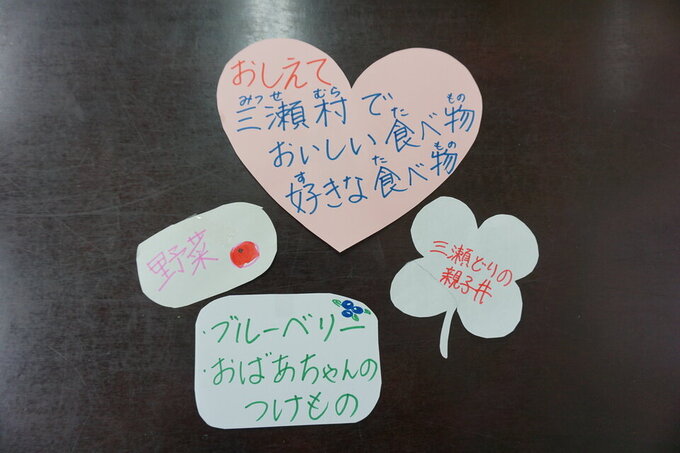 おしえて
三瀬村で
みつせむら
おいしい食べ物
たもの
好きな食べ物
すたもの
野菜
三瀬どりの
親子丼
・ブルーベリー
・おばあちゃんの
つけもの